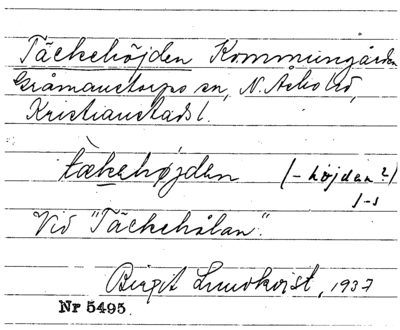 Täckehöjden Kommungården
Gråmanstorps sn, N. Åsbo hd,
Kristianstads l.
tækehöjden (-höjden?)
1-1
Vid "Täckehålan".
Birgit Lundkvist, 1937
Nr 5495